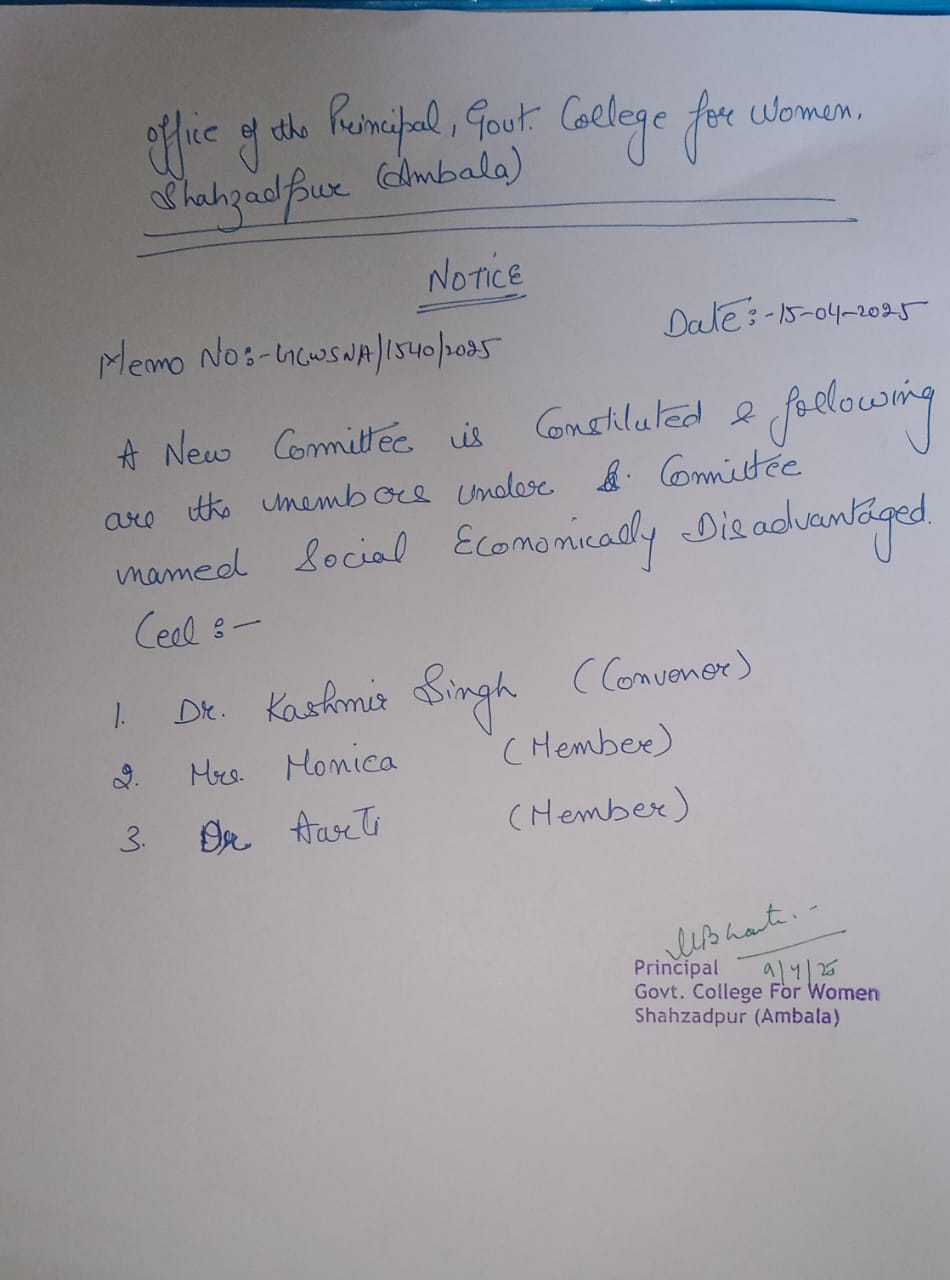 Office of the Principal, Govt. College for Women,
Shahzadpur (Ambala)
NOTICE
Date:-15-04-2025
Memo No:-GCWSNA/1540/2025
A New Committee is Constituted & following
are the members under Committee
named Social Economically Disadvantaged
Cell :-
1. Dr. Kashmir Singh (Convenor)
2. Mrs. Monica (Member)
3. Dr Aarti (Member)
Principal 9/4/25
Govt. College For Women
Shahzadpur (Ambala)